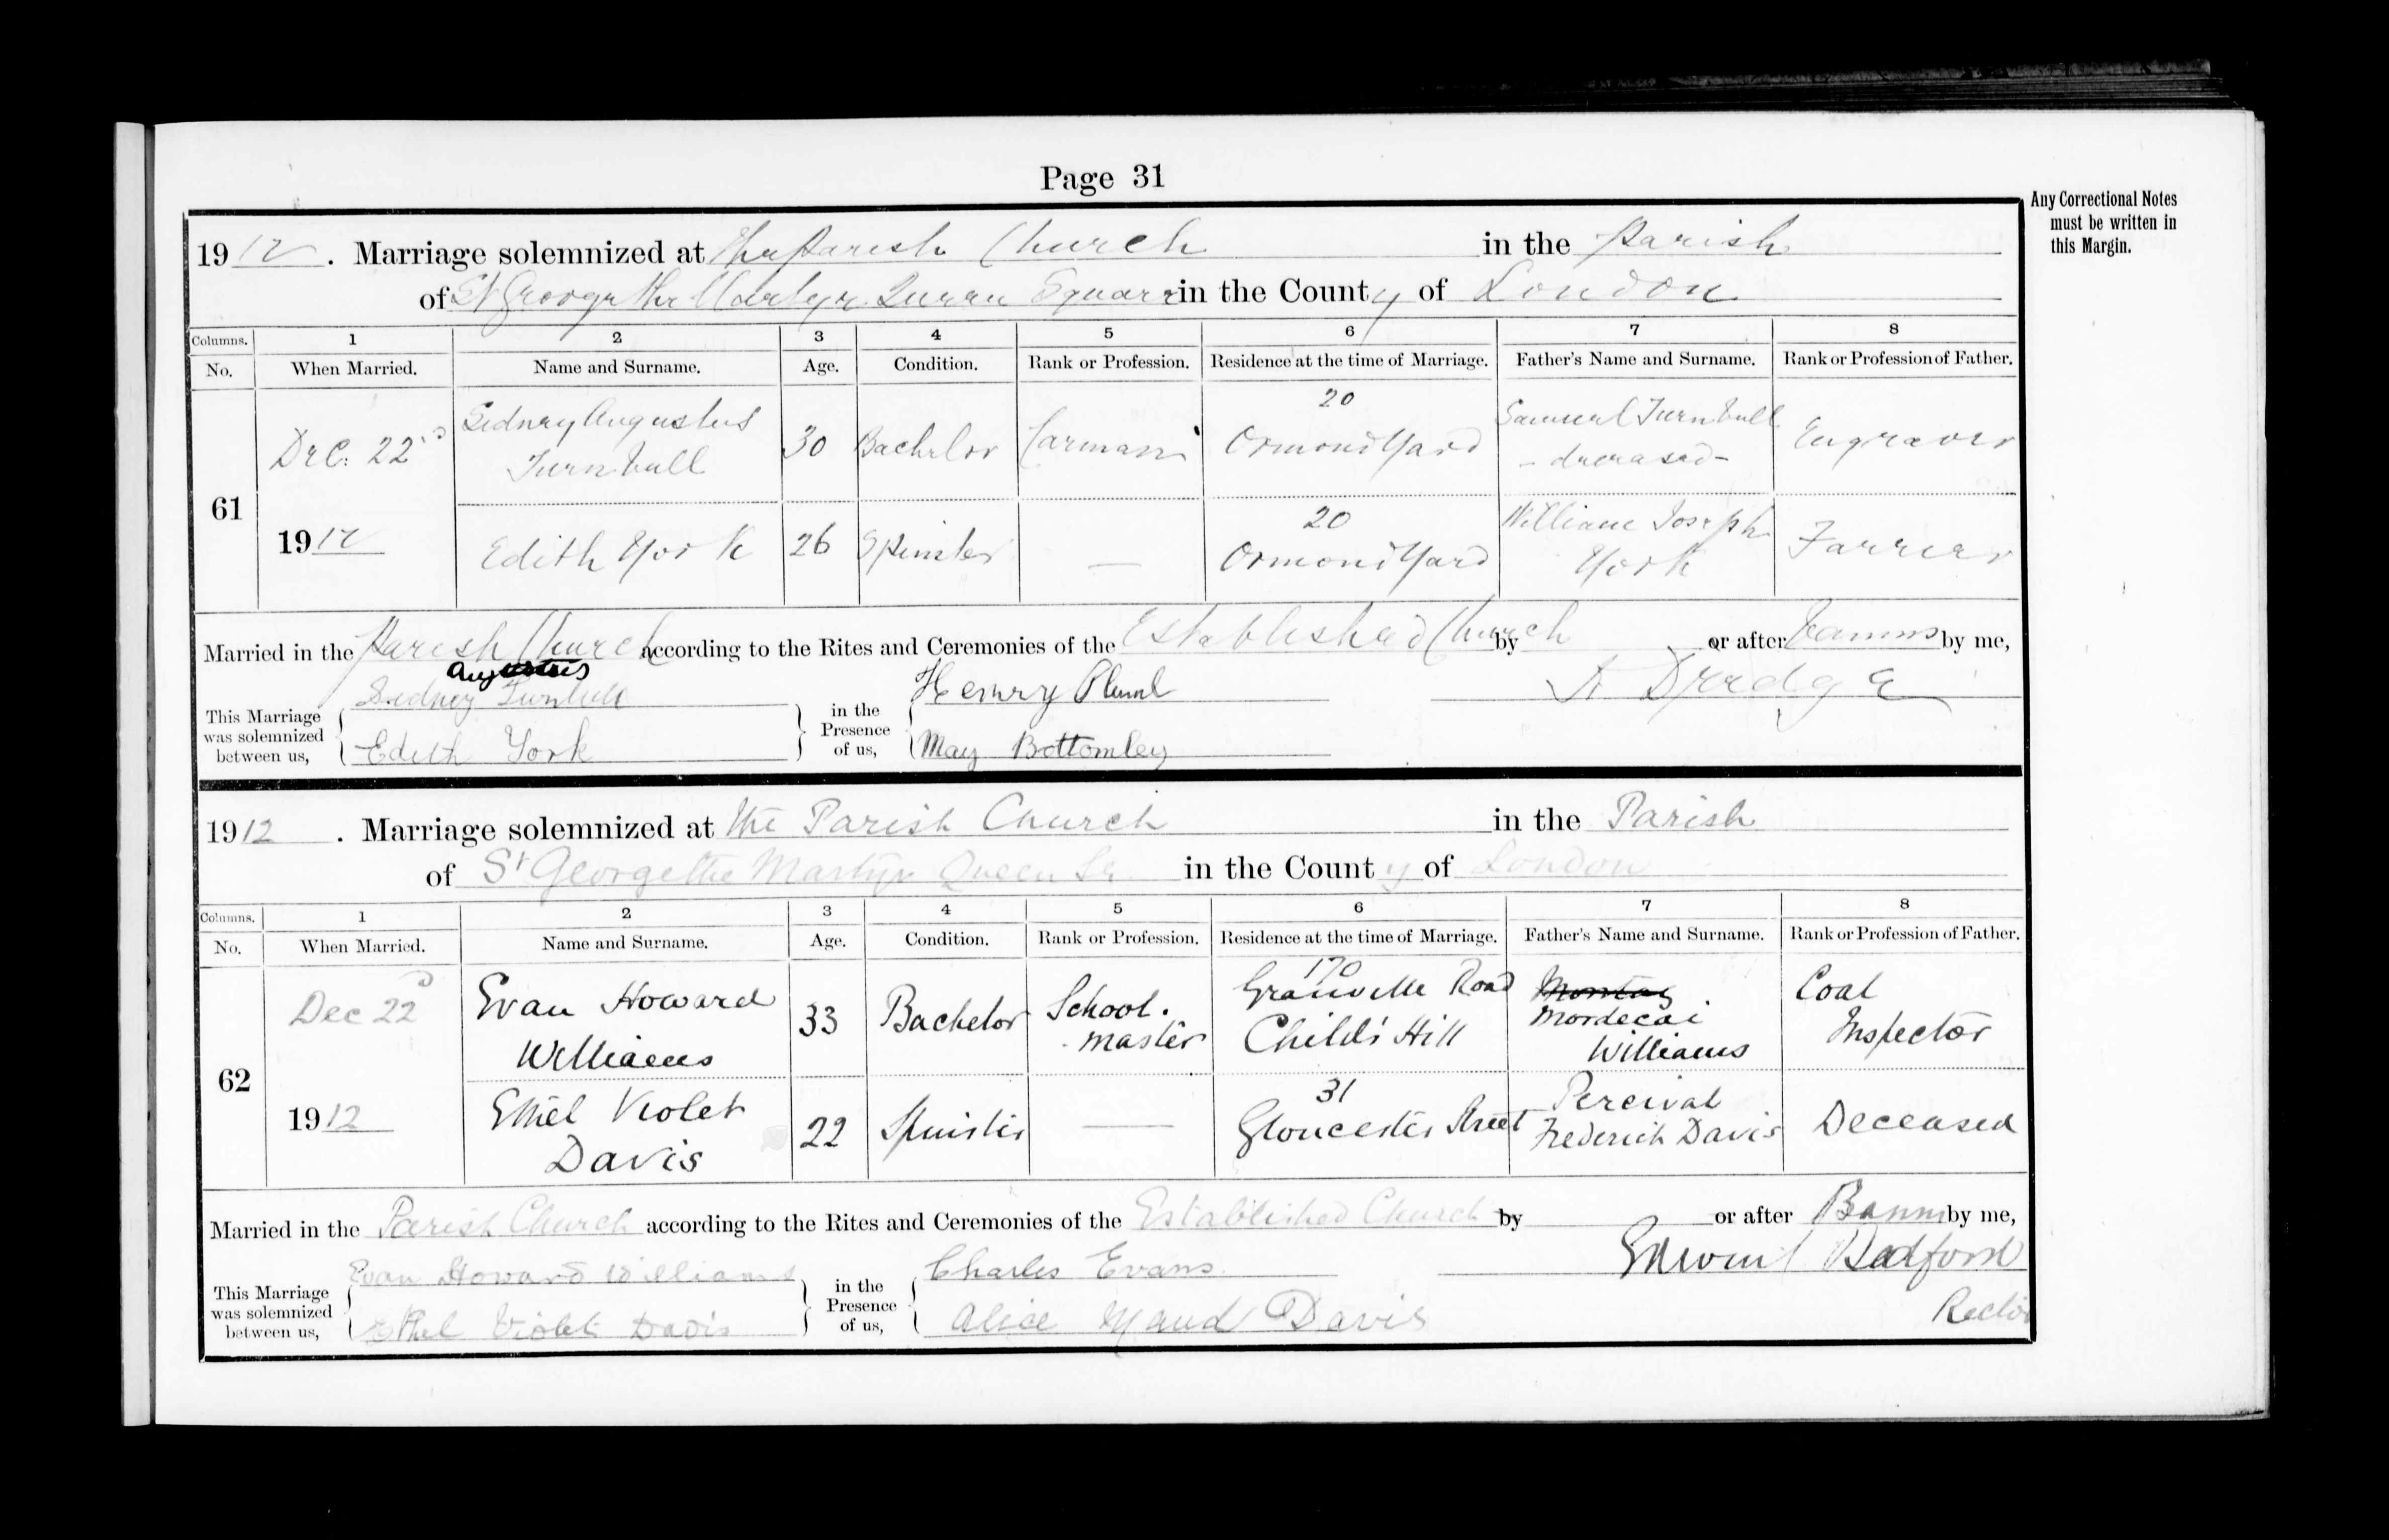 Page 31
Any Correctional Notes
must be written in
this Margin.
1912. Marriage solemnized at The Parish Church in the Parish
of St George the Martyr Queen Square in the County of London
Columns. 1 2 3 4 5 6 7 8
No. When Married. Name and Surname. Age. Condition. Rank or Profession. Residence at the time of Marriage. Father's Name and Surname. Rank or Profession of Father.
61 Dec. 22nd 1912 Sidney Augustus Turnbull 30 Bachelor Carman 20 Ormond Yard Samuel Turnbull - deceased - Engraver
Edith York 26 Spinster — 20 Ormond Yard William Joseph York Farrier
Married in the Parish Church according to the Rites and Ceremonies of the Established Church by or after Banns by me,
Augustus
This Marriage was solemnized between us, Sidney Turnbull Edith York in the Presence of us, Henry Plumb May Bottomley A Dredge
1912. Marriage solemnized at the Parish Church in the Parish
of St George the Martyr Queen Sq in the County of London
Columns. 1 2 3 4 5 6 7 8
No. When Married. Name and Surname. Age. Condition. Rank or Profession. Residence at the time of Marriage. Father's Name and Surname. Rank or Profession of Father.
62 Dec 22d 1912 Evan Howard Williams 33 Bachelor School. master 170 Granville Road Child's Hill Mordecai Williams Coal Inspector
Ethel Violet Davis 22 Spinster — 31 Gloucester Street Percival Frederick Davis Deceased
Married in the Parish Church according to the Rites and Ceremonies of the Established Church by or after Banns by me,
This Marriage was solemnized between us, Evan Howard Williams Ethel Violet Davis in the Presence of us, Charles Evans Alice Maud Davis Bedford Rector